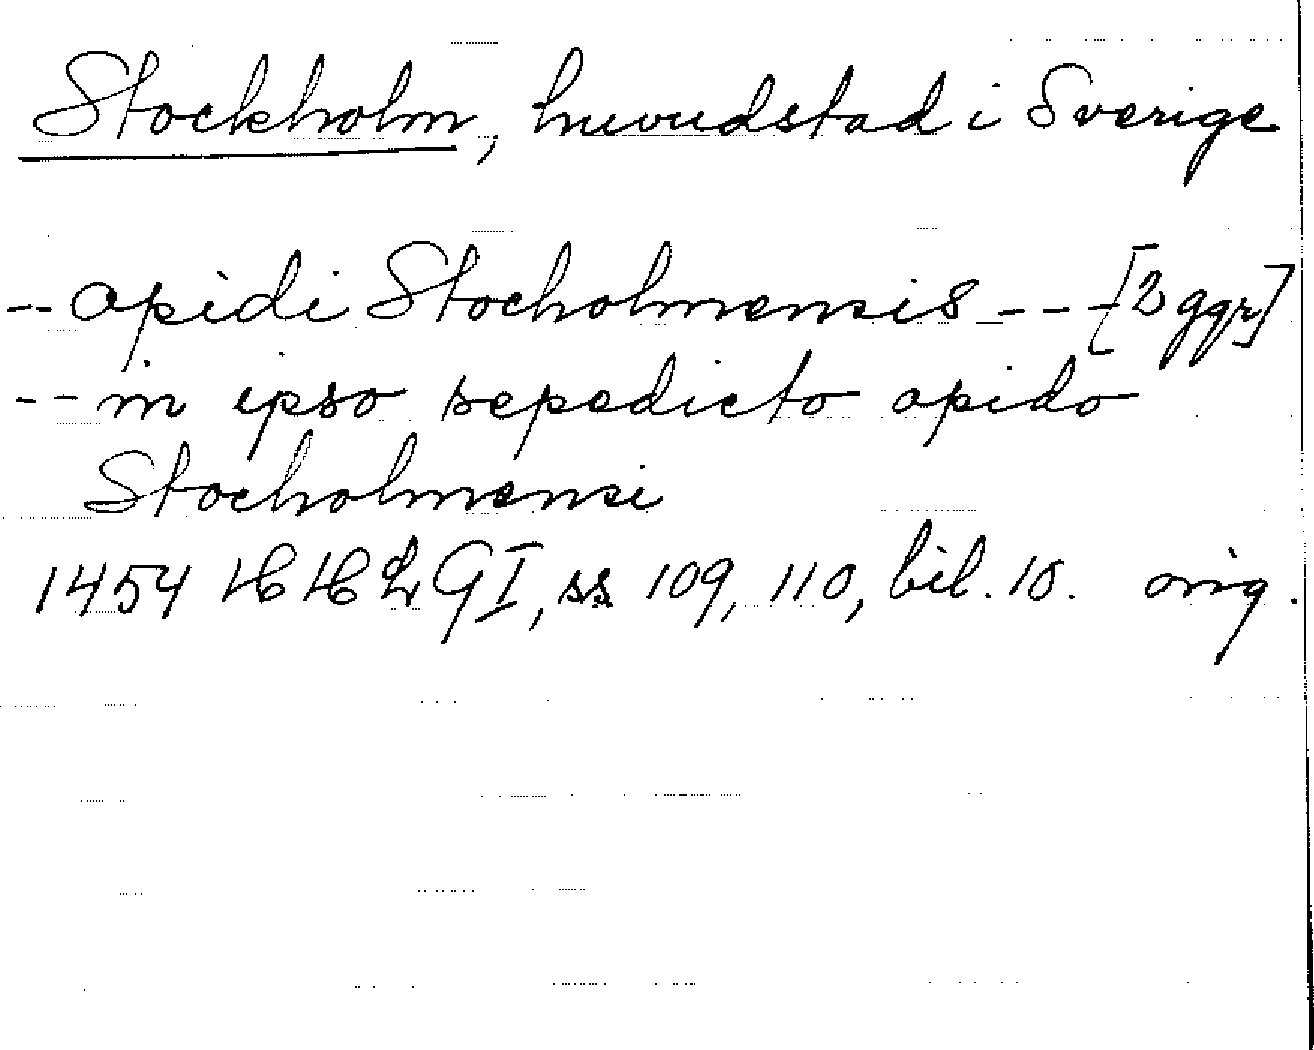 Stockholm, huvudstad i Sverige
-- opidi Stocholmensis --- [2 ggr]
-- in ipso sepedicto opido
Stocholmensi
1454 HH2 GI, ss 109, 110, bil. 10. orig.